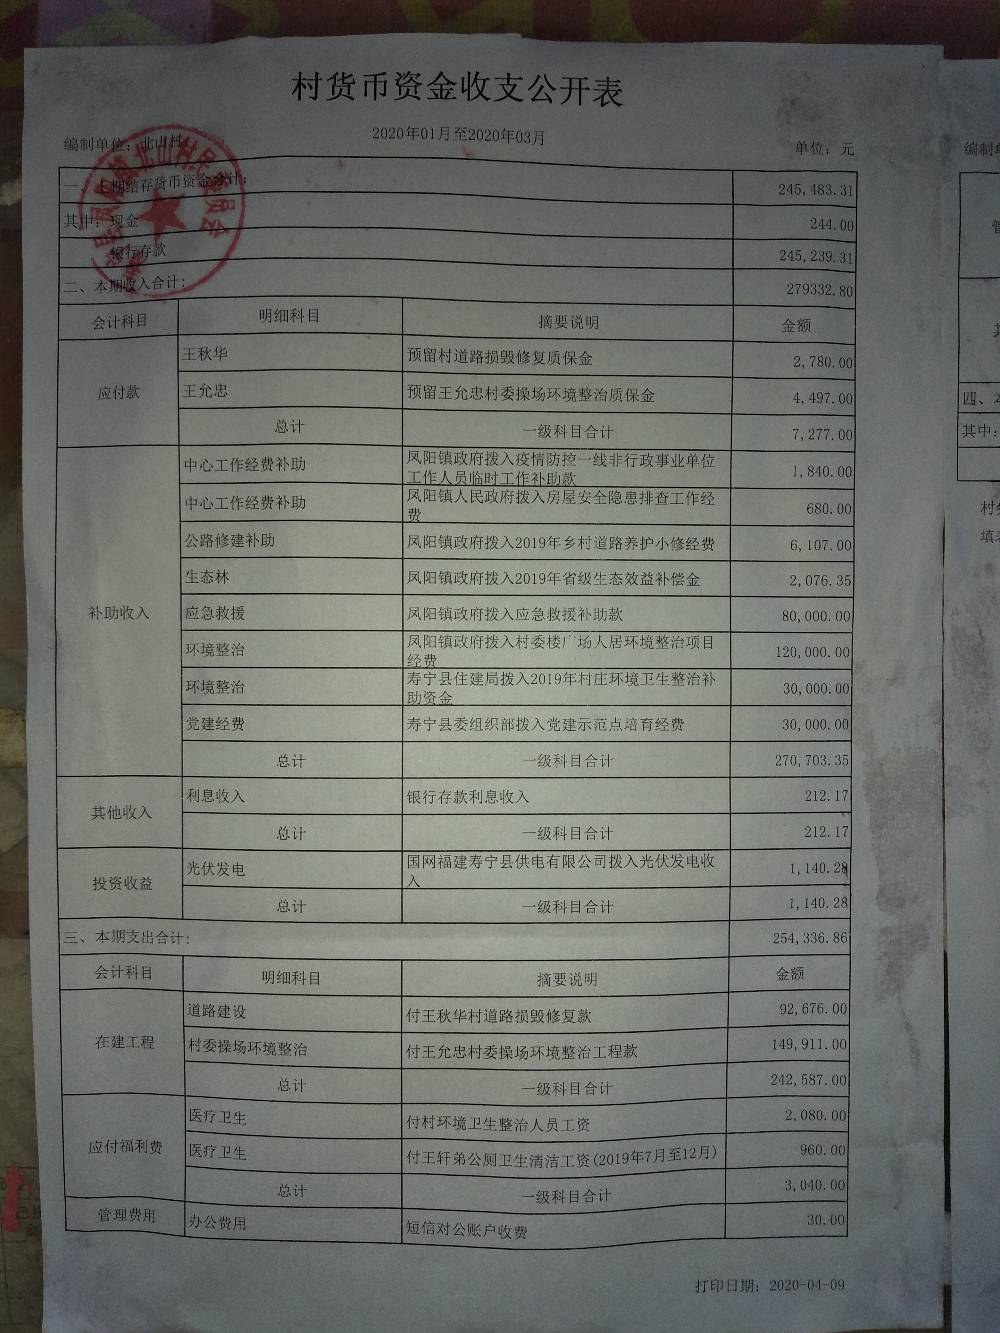 村货币资金收支公开表
编制单位：北山村
2020年01月至2020年03月
单位：元
一、上期结存货币资金合计： 245,483.31
其中：现金 244.00
银行存款 245,239.31
二、本期收入合计： 279332.80
会计科目 明细科目 摘要说明 金额
应付款
王秋华 预留村道路损毁修复质保金 2,780.00
王允忠 预留王允忠村委操场环境整治质保金 4,497.00
总计 一级科目合计 7,277.00
补助收入
中心工作经费补助 凤阳镇政府拨入疫情防控一线非行政事业单位 1,840.00
工作人员临时工作补助款
中心工作经费补助 凤阳镇人民政府拨入房屋安全隐患排查工作经 680.00
费
公路修建补助 凤阳镇政府拨入2019年乡村道路养护小修经费 6,107.00
生态林 凤阳镇政府拨入2019年省级生态效益补偿金 2,076.35
应急救援 凤阳镇政府拨入应急救援补助款 80,000.00
环境整治 凤阳镇政府拨入村委楼广场人居环境整治项目 120,000.00
经费
环境整治 寿宁县住建局拨入2019年村庄环境卫生整治补 30,000.00
助资金
党建经费 寿宁县委组织部拨入党建示范点培育经费 30,000.00
总计 一级科目合计 270,703.35
其他收入
利息收入 银行存款利息收入 212.17
总计 一级科目合计 212.17
投资收益
光伏发电 国网福建寿宁县供电有限公司拨入光伏发电收 1,140.28
入
总计 一级科目合计 1,140.28
三、本期支出合计： 254,336.86
会计科目 明细科目 摘要说明 金额
在建工程
道路建设 付王秋华村道路损毁修复款 92,676.00
村委操场环境整治 付王允忠村委操场环境整治工程款 149,911.00
总计 一级科目合计 242,587.00
应付福利费
医疗卫生 付村环境卫生整治人员工资 2,080.00
医疗卫生 付王轩弟公厕卫生清洁工资(2019年7月至12月) 960.00
总计 一级科目合计 3,040.00
管理费用 办公费用 短信对公账户收费 30.00
打印日期：2020-04-09
编制单
四、本
其中：
村
填